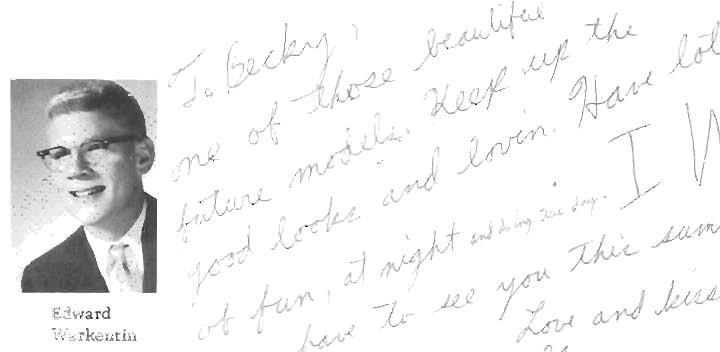 To Becky,
one of those beautiful
future models. Keep up the
good looks and lovin. Have lot
of fun, at night and during the day. I W
have to see you this sum
Love and kiss
Edward
Warkentin